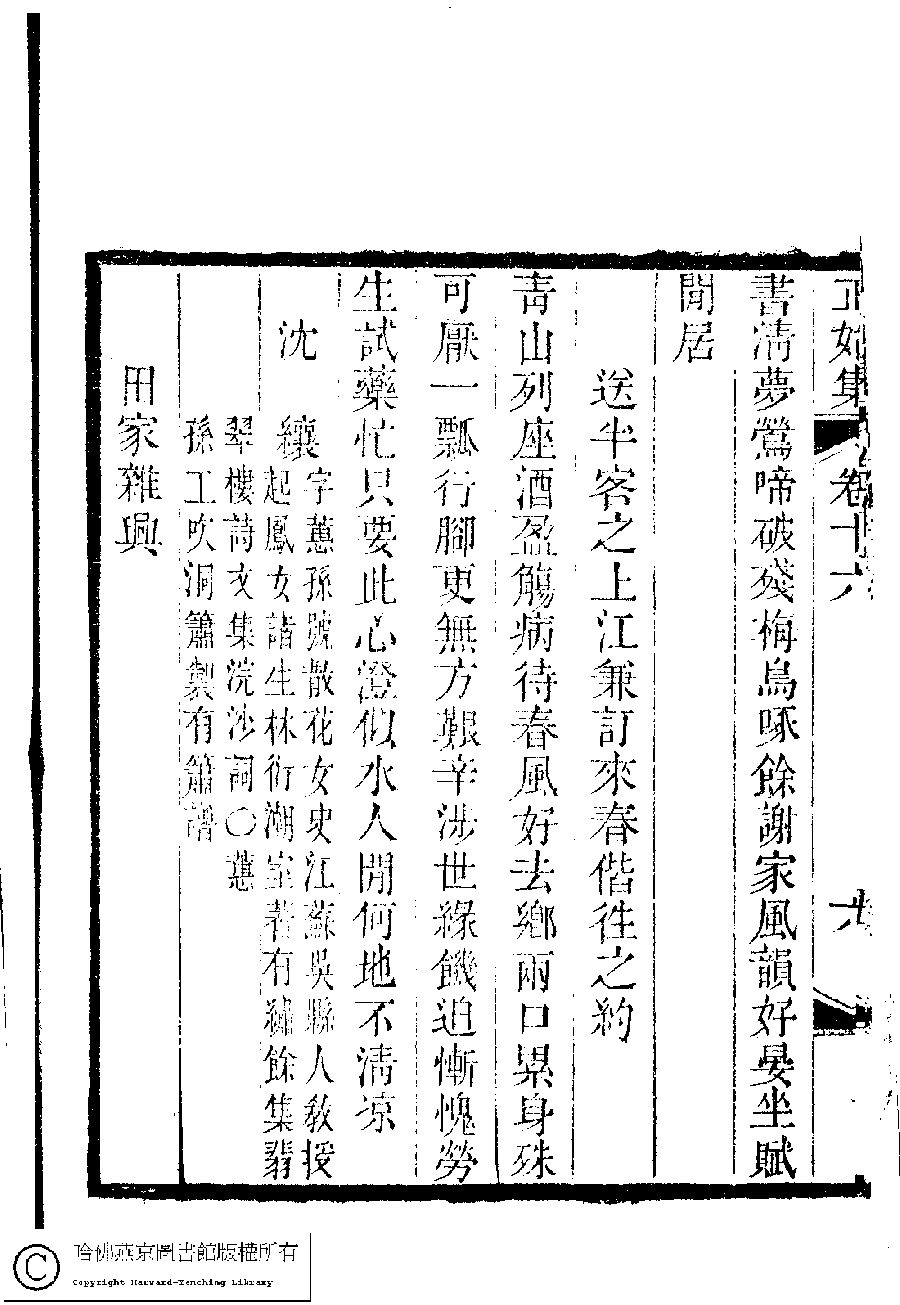 正始集 卷十六 六
書清夢鶯啼破殘梅鳥啄餘謝家風韻好晏坐賦
閒居
送半客之上江兼訂來春偕往之約
青山列座酒盈觴病待春風好去鄉兩口累身殊
可厭一瓢行腳更無方艱辛涉世緣饑迫慚愧勞
生試藥忙只要此心澄似水人閒何地不清涼
沈纕
字蕙孫號散花女史江蘇吳縣人教授
起鳳女諸生林衍潮室著有繡餘集翡
翠樓詩文集浣沙詞〇蕙
孫工吹洞簫製有簫譜
田家雜興
哈佛燕京圖書館版權所有
Copyright Harvard-Yenching Library